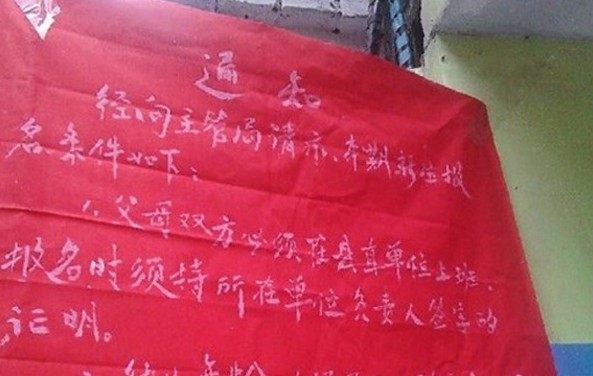 通知
经向主管局请示、本期新生报
名条件如下:
1、父母双方必须在县直单位上班、
报名时须持所在单位负责人签字的
证明。
2、新生年龄